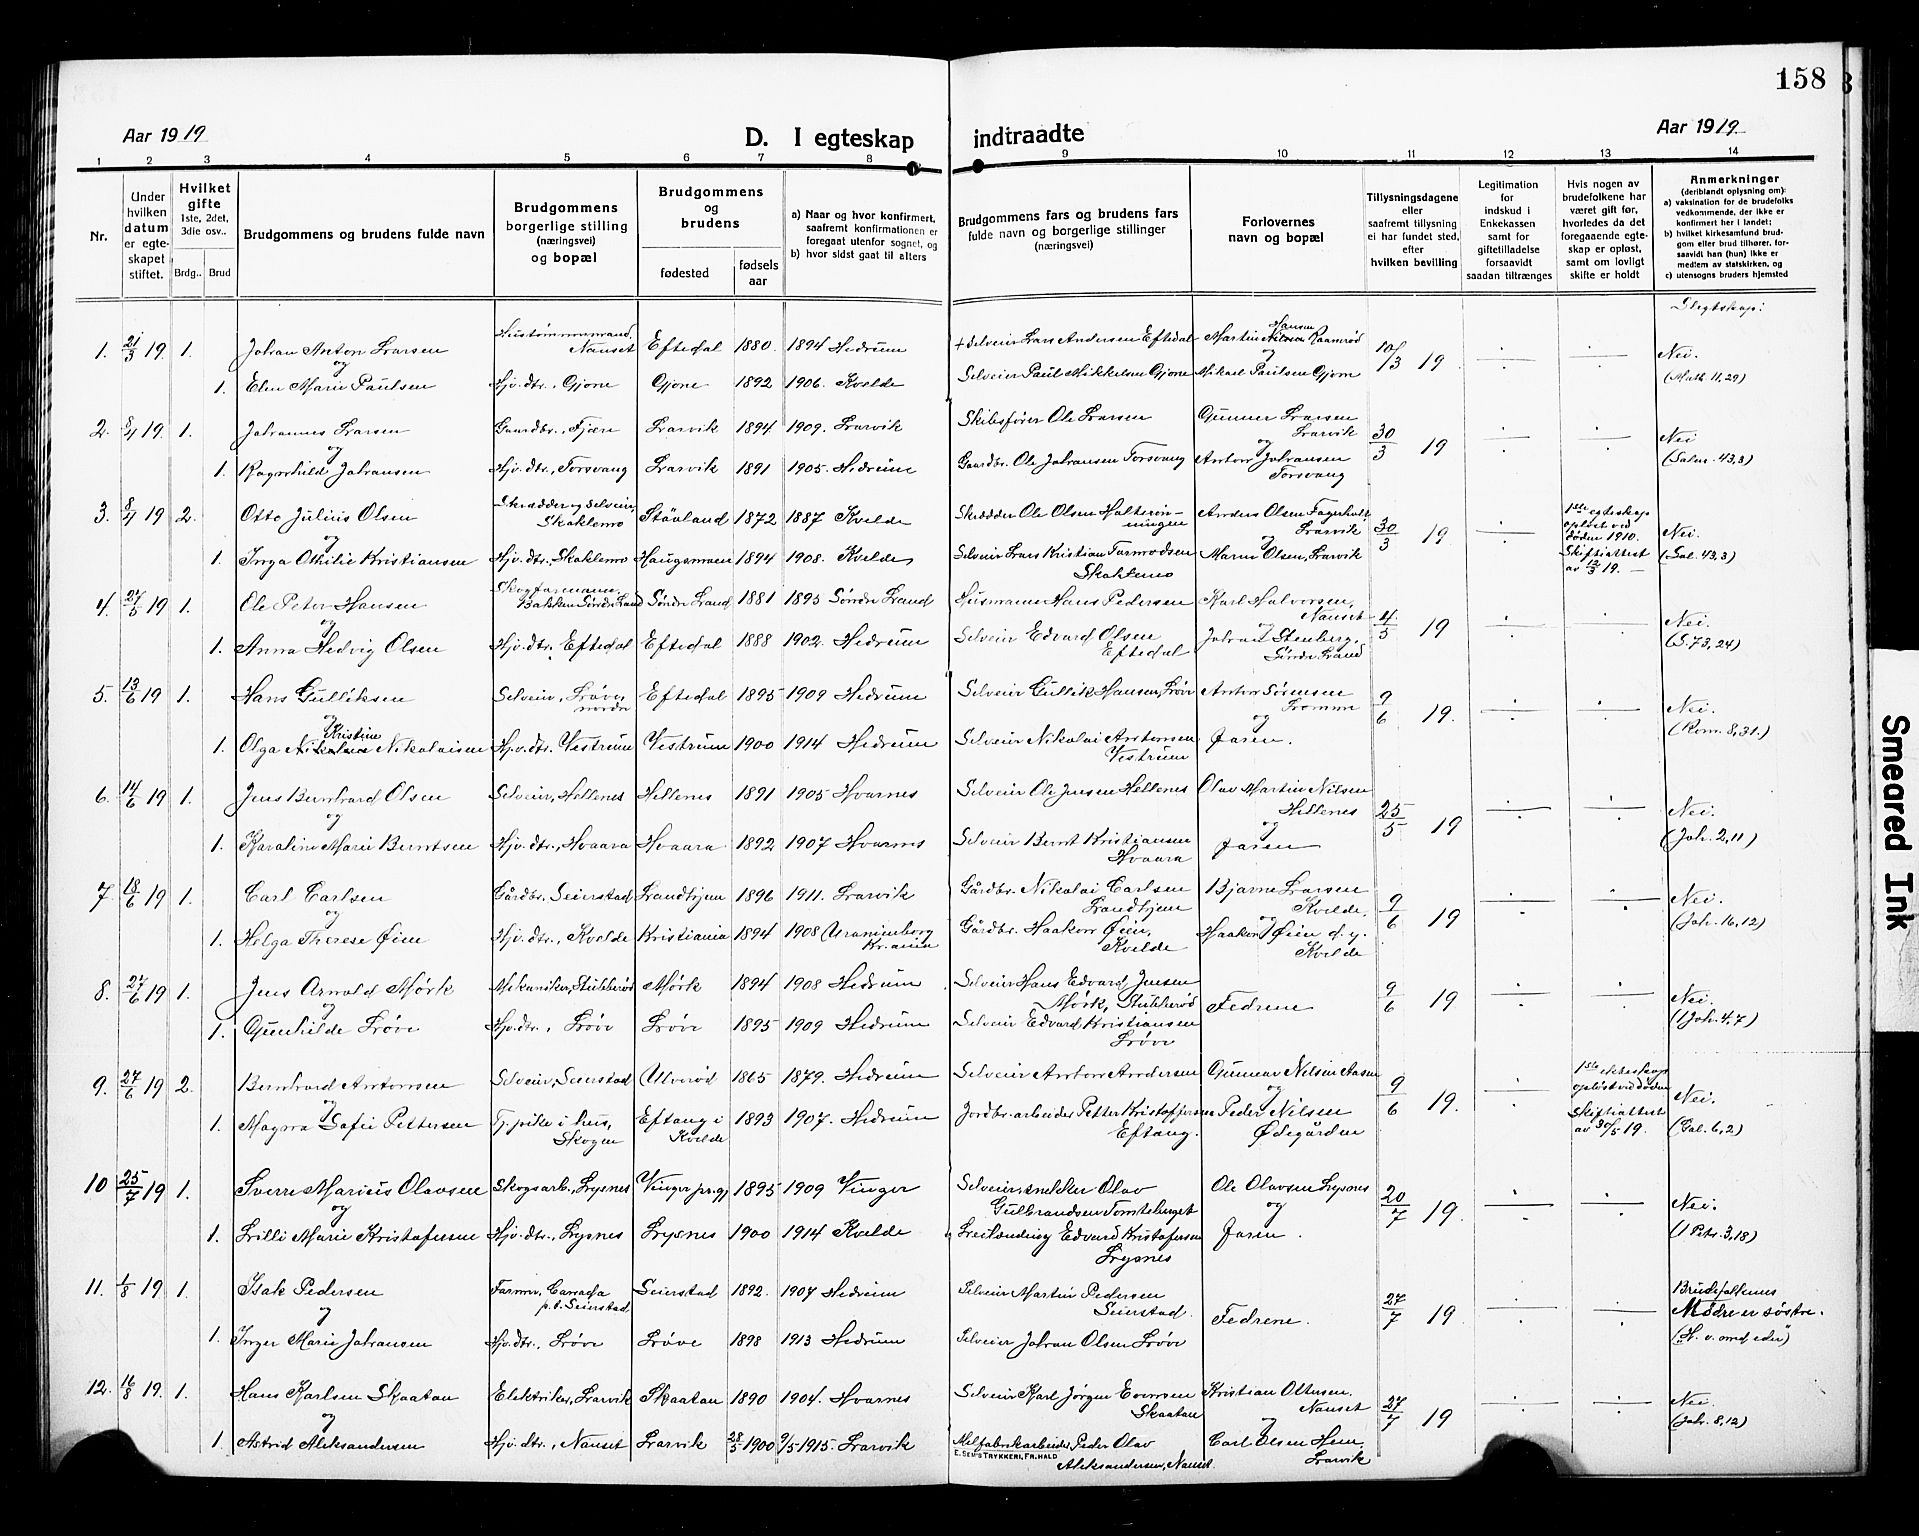 158
Aar 1919
D. I egteskap indtraadte
Aar 1919
1 2 3 4 5 6 7 8 9 10 11 12 13 14
Nr.
Under hvilken datum er egteskapet stiftet.
Hvilket gifte 1ste, 2det, 3die osv..
Brdg.. Brud
Brudgommens og brudens fulde navn
Brudgommens borgerlige stilling (næringsvei) og bopæl
Brudgommens og brudens
fødested
fødsels aar
a) Naar og hvor konfirmert, saafremt konfirmationen er foregaat utenfor sognet, og
b) hvor sidst gaat til alters
Brudgommens fars og brudens fars fulde navn og borgerlige stillinger (næringsvei)
Forlovernes navn og bopæl
Tillysningsdagene eller saafremt tillysning ei har fundet sted, efter hvilken bevilling
Legitimation for indskud i Enkekassen samt for giftetilladelse forsaavidt saadan tiltrænges
Hvis nogen av brudefolkene har været gift før, hvorledes da det foregaaende egteskap er opløst, samt om lovligt skifte er holdt
Anmerkninger (deriblandt oplysning om):
a) vaksination for de brudefolks vedkommende, der ikke er konfirmert her i landet;
b) hvilket kirkesamfund brudgom eller brud tilhører, forsaavidt han (hun) ikke er medlem av statskirken, og
c) utensogns bruders hjemsted
Slegtskap:
1. 21/3 19 1. Johan Anton Larsen Nanset Eftedal 1880 1894 Hedrum + Selveier Lars Andersen Eftedal Martin Hansen Raamrød 10/3 19 Nei
og
1. Elen Marie Paulsen Hjv. dtr., Gjone Gjone 1892 1906. Kvelde Selveier Paul Mikkelsen Gjone Mikael Paulsen Gjone (Math. 11,29)
2. 8/4 19 1. Johannes Larsen Gaardbr., Fjære Larvik 1894 1909. Larvik Skibsfører Ole Larsen Gunnar Larsen Larvik 30/3 19 Nei
og
1. Ragnhild Johansen Hjv. dtr., Torsvang Larvik 1891 1905. Hedrum Gaardbr. Ole Johansen Torsvang Anton Johansen Torsvang (Salm. 43,3)
3. 8/4 19 2. Otto Julius Olsen Skrædder og selveier, Skaklemo Stavland 1872 1887 Kvelde Skrædder Ole Olsen Anders Olsen Larvik 30/3 19 1ste egteskap opløst ved døden 1910. Skifteattest av 12/3 19. Nei.
og
1. Inga Othilie Kristiansen Hjv. dtr., Skaklemo Haugsmoen 1894 1908. Kvelde Selveier Lars Kristian Tarmodsen Skaklemo Marin Olsen, Larvik (Sal. 43,3)
4. 27/5 19 1. Ole Peter Hansen Bakken Søndre Land Søndre Land 1881 1895 Søndre Land Husmann Hans Pedersen Karl Halvorsen, Nanset 4/5 19 Nei.
og
1. Anna Hedvig Olsen Hjv. dtr. Eftedal Eftedal 1888 1902. Hedrum Selveier Edvard Olsen Eftedal Johan Stenberg, Søndre Land (S. 73,24)
5. 13/6 19 1. Hans Gulliksen Selveier, Frøve nordre Eftedal 1895 1909 Hedrum Selveier Gullik Hansen, Frøve Anton Sørensen Fromme 9/6 19. Nei.
og
1. Olga Kristine Nikolaisen Hjv. dtr. Vestrum Vestrum 1900 1914 Hedrum Selveier Nikolai Antonsen Vestrum Faren. (Rom. 8,31.)
6. 14/6 19 1. Jens Bernhard Olsen Selveier, Hellenes Hellenes 1891 1905 Hvarnes Selveier Ole Jensen Hellenes Olav Martin Nilsen Hellenes 25/5 19 Nei.
og
1. Karoline Marie Berntsen Hjv. dtr., Hvaara Hvaara 1892 1907 Hvarnes Selveier Bernt Kristiansen Hvaara Faren (Joh. 2,11)
7. 18/6 19 1. Carl Carlsen Gårdbr. Seierstad 1896 1911. Larvik Gårdbr. Nikolai Carlsen Bjarne Larsen Kvelde. 9/6 19 Nei.
og
1. Helga Therese Øien Hjv. dtr., Kvelde Kristiania 1894 1908 Uranienborg Kr.ania Gårdbr. Haakon Øien, Kvelde Haakon Øien d.y. Kvelde (Joh. 16,12)
8. 27/6 19 1. Jens Arnold Mørk Mekaniker, Stubberød Mørk 1894 1908 Hedrum Selveier Hans Edvard Jensen Mørk, Stubberød Fedrene 9/6 19 Nei.
og
1. Gunhilde Frøve Hjv. dtr., Frøve Frøve 1895 1909 Hedrum Selveier Edvard Kristiansen Frøve (1 Joh. 4,7)
9. 27/6 19 2. Bernhard Antonsen Selveier, Seierstad Ulverød 1865 1879. Hedrum Selveier Anton Andersen Gunnar Nilsen Aasen 9/6 19. 1ste ekteskap opløst ved døden Skifteattest av 30/5 19. Nei.
og
1. Magna Sofie Pettersen Tj. pike i hus, Skogen Eftang i Kvelde 1893 1907. Hedrum Jordbr. arbeider Petter Kristoffersen Eftang. Peder Nilsen Ødegården (Gal. 6,2)
10 25/7 19 1. Sverre Marius Olavsen Skogsarb., Lysnes Vinger pr.gj. 1895 1909 Vinger Selveier, snekker Olav Gulbrandsen Tomteberget Ole Olavsen Lysnes 20/7 19. Nei.
og
1. Lilli Marie Kristofersen Hjv. dtr., Lysnes Lysnes 1900 1914 Kvelde Leilænding Edvard Kristofersen Lysnes Faren. (1 Petr. 3,18)
11. 1/8 19 1. Isak Pedersen Farmer, Canada p.t. Seierstad Seierstad 1892. 1907 Hedrum Selveier Martin Pedersen Seierstad. Fedrene. 27/7 19 Brudefolkenes Mødre er søstre.
og
1. Inger Marie Johansen Hjv. dtr., Frøve Frøve 1898 1913 Hedrum Selveier Johan Olsen Frøve
12. 16/8 19. 1. Hans Karlsen Skaatan Elektriker, Larvik Skaatan 1890 1904. Hvarnes Selveier Karl Jørgen Evensen Skaatan Kristian Ottersen. Nanset 27/7 19 Nei.
og
1. Astrid Aleksandersen Hjv. dtr., Nanset Larvik 28/5 1900 9/5 1915. Larvik Melfabrikarbeider Peder Olav Aleksandersen, Nanset. Carl Olsen Hem, Larvik (Joh. 8,12)
E. SEM'S TRYKKERI, FR.HALD
Smeared Ink